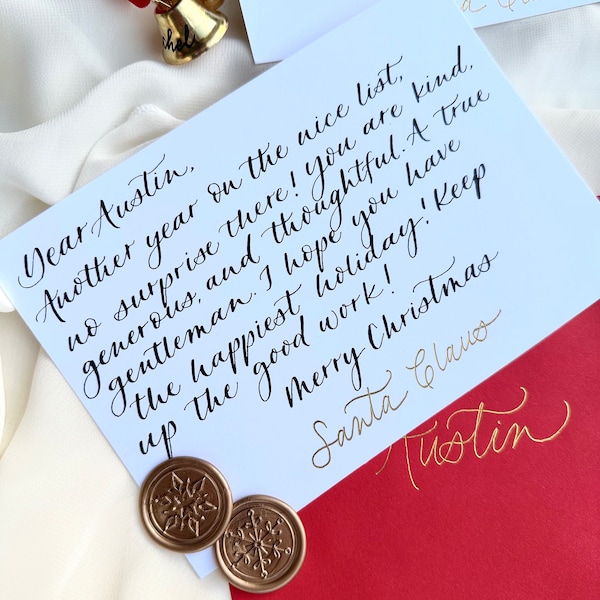 Dear Austin,
Another year on the nice list,
no surprise there! You are kind,
generous, and thoughtful. A true
gentleman. I hope you have
the happiest holiday! Keep
up the good work!
Merry Christmas
Santa Claus
Austin